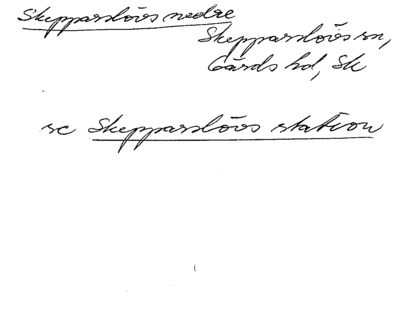 Skepparslövs nedre
Skepparslövs sn,
Gärds hd, Sk
se Skepparslövs station